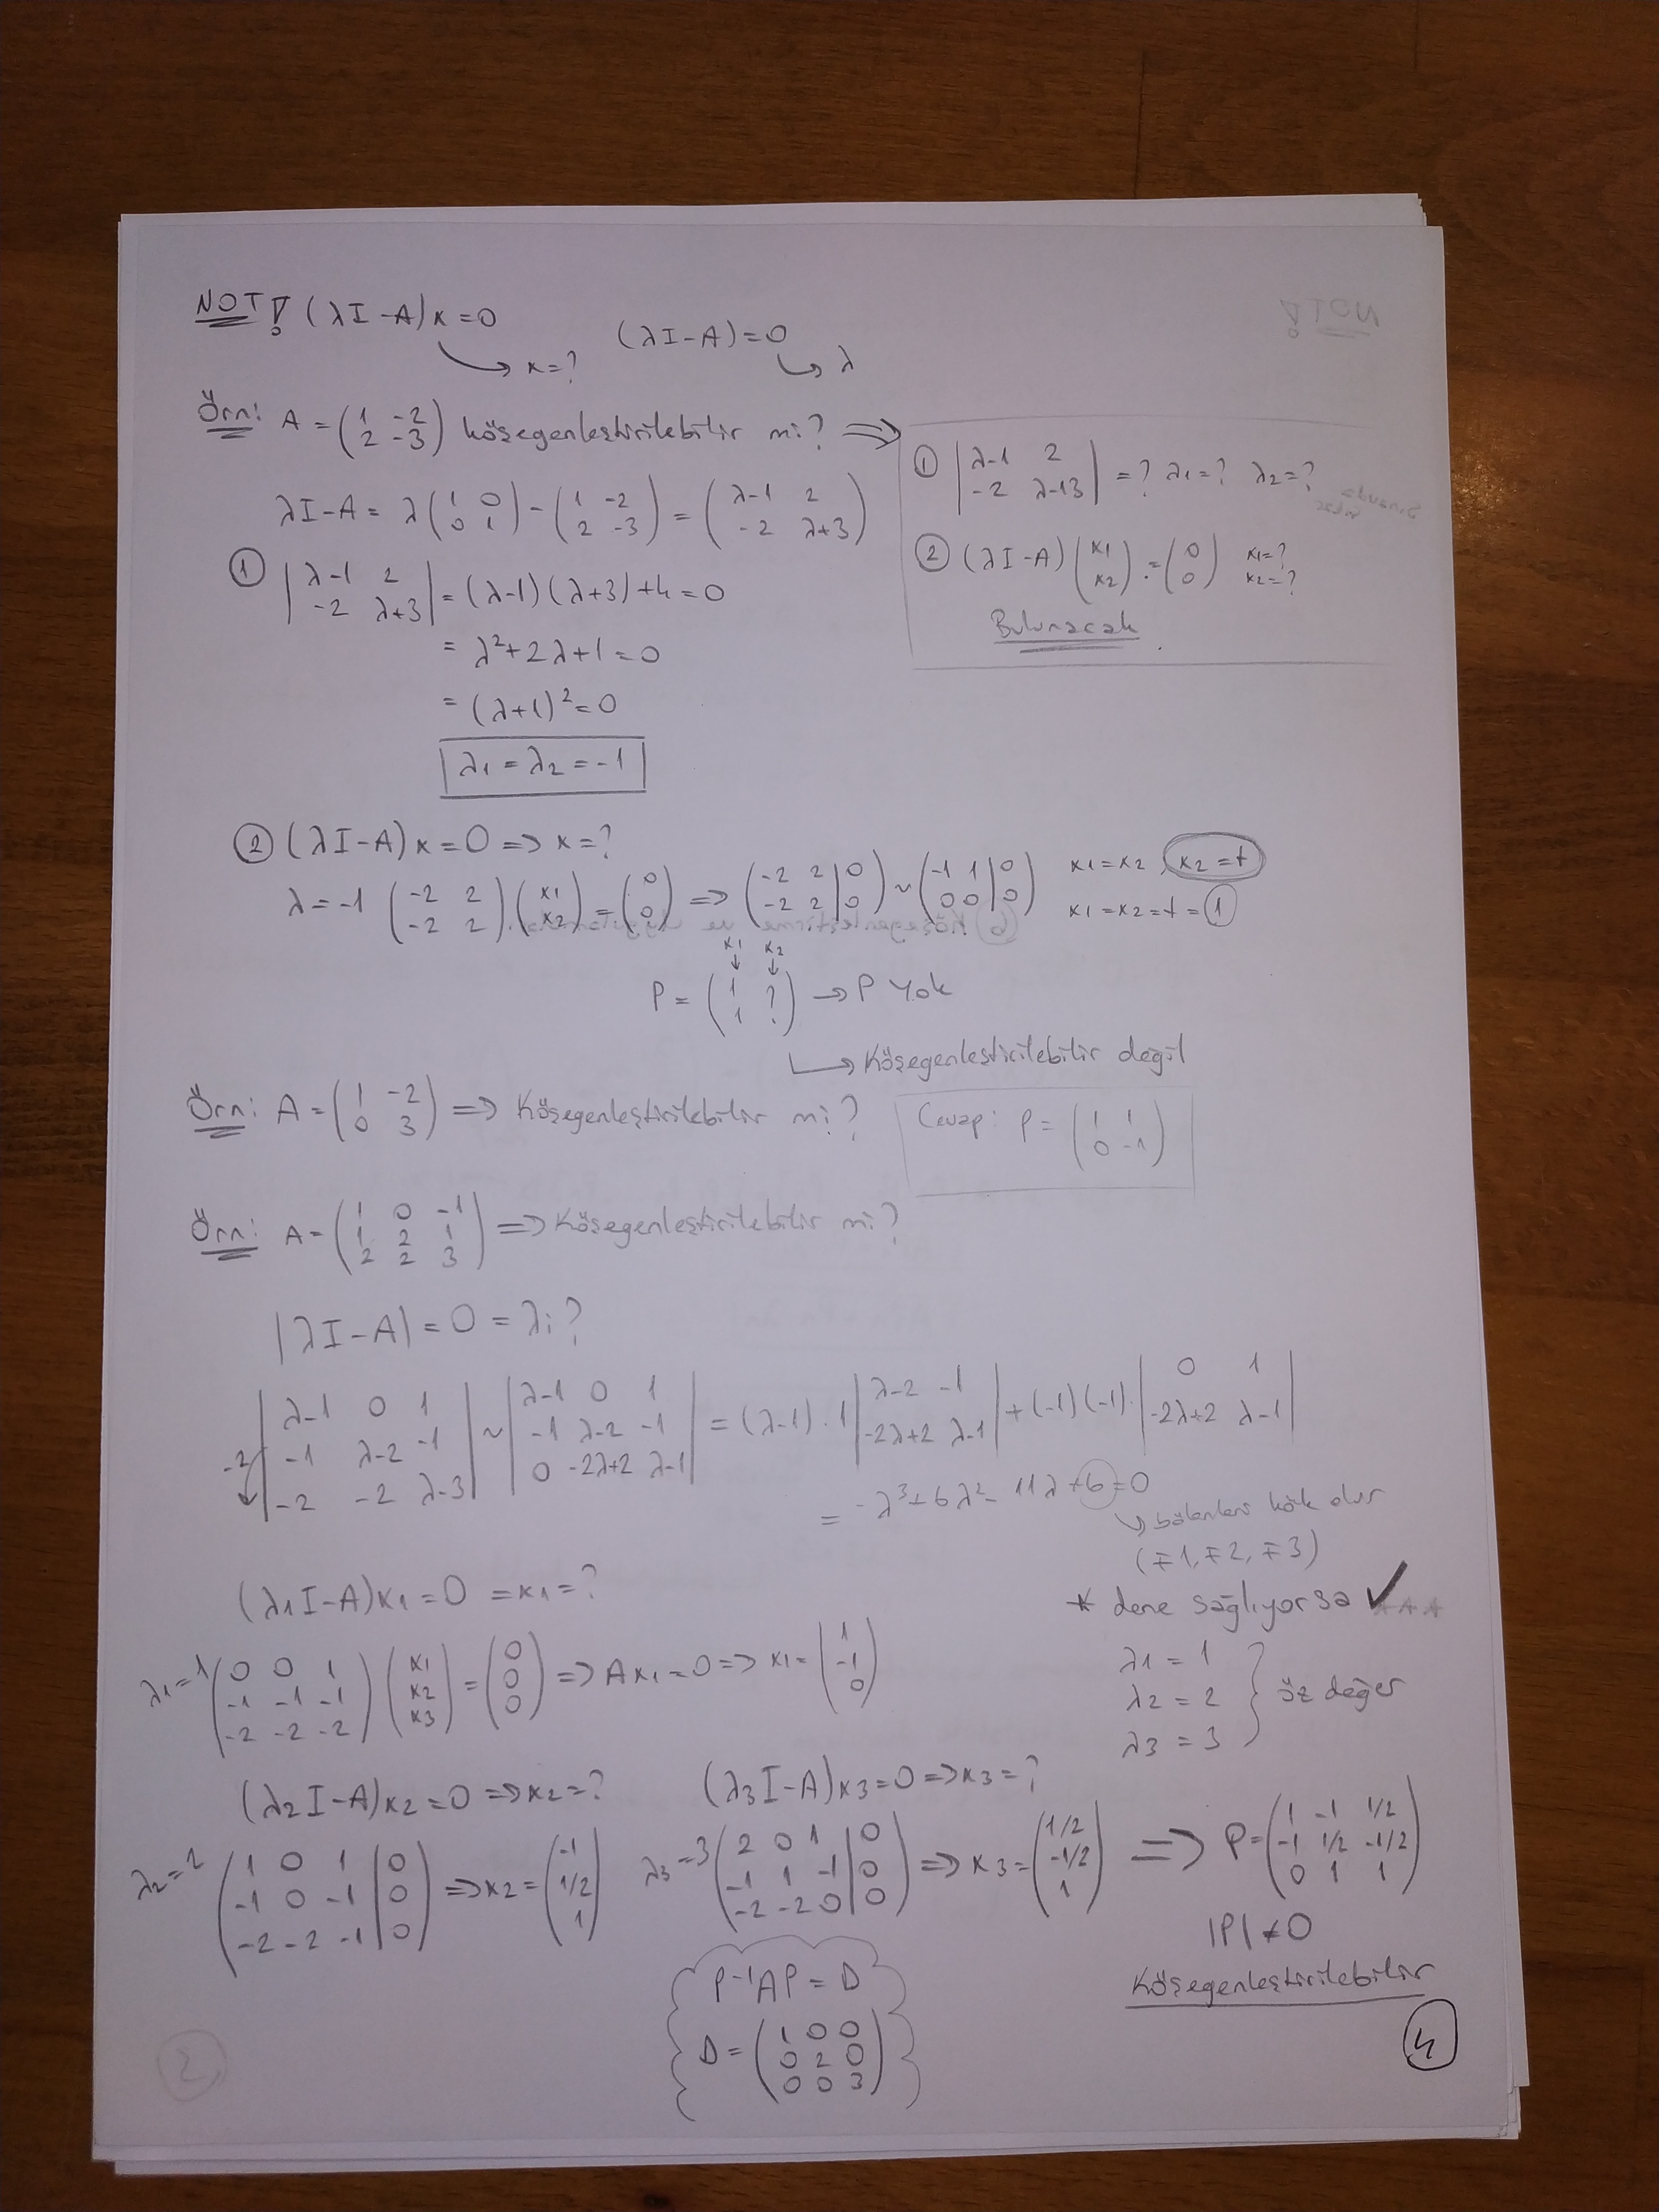 NOT! (λI-A)x=0
→ x=?
(λI-A)=0
→ λ
Örn: A = (1 -2; 2 -3) köşegenleştirilebilir mi? ⇒
① |λ-1 2; -2 λ+3| = ? λ1=? λ2=?
② (λI-A)(x1; x2) = (0; 0) x1=? x2=?
Bulunacak
λI-A = λ(1 0; 0 1) - (1 -2; 2 -3) = (λ-1 2; -2 λ+3)
① |λ-1 2; -2 λ+3| = (λ-1)(λ+3)+4=0
= λ²+2λ+1=0
= (λ+1)²=0
λ1 = λ2 = -1
② (λI-A)x=0 => x=?
λ=-1 (-2 2; -2 2)(x1; x2) = (0; 0) => (-2 2 | 0; -2 2 | 0) ~ (-1 1 | 0; 0 0 | 0) x1=x2, x2=t
x1=x2=t=1
x1 x2
↓ ↓
P = (1 ?; 1 ) → P Yok
→ Köşegenleştirilebilir değil
Örn: A = (1 -2; 0 3) => Köşegenleştirilebilir mi?
Cevap: P = (1 1; 0 -1)
Örn: A = (1 0 -1; 1 2 1; 2 2 3) => Köşegenleştirilebilir mi?
|λI-A| = 0 = λi?
-2 |λ-1 0 1; -1 λ-2 -1; -2 -2 λ-3| ~ |λ-1 0 1; -1 λ-2 -1; 0 -2λ+2 λ-1| = (λ-1).1 |λ-2 -1; -2λ+2 λ-1| + (-1)(-1). |0 1; -2λ+2 λ-1|
= -λ³+6λ²-11λ+6=0
→ bölenleri kök olur
(∓1, ∓2, ∓3)
* dene sağlıyorsa ✓
λ1 = 1
λ2 = 2
λ3 = 3
} öz değer
(λ1I-A)x1=0 = x1=?
λ1=1 (0 0 1; -1 -1 -1; -2 -2 -2)(x1; x2; x3) = (0; 0; 0) => Ax1=0 => x1 = (1; -1; 0)
(λ2I-A)x2=0 => x2=?
λ2=2 (1 0 1 | 0; -1 0 -1 | 0; -2 -2 -1 | 0) => x2 = (-1; 1/2; 1)
(λ3I-A)x3=0 => x3=?
λ3=3 (2 0 1 | 0; -1 1 -1 | 0; -2 -2 0 | 0) => x3 = (1/2; -1/2; 1) => P = (1 -1 1/2; -1 1/2 -1/2; 0 1 1)
|P| ≠ 0
Köşegenleştirilebilir
P⁻¹AP = D
D = (1 0 0; 0 2 0; 0 0 3)
4